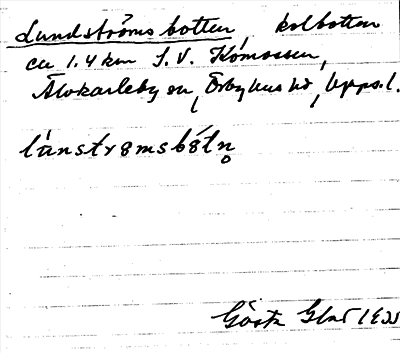 Lundströms botten, kolbotten
ca 1.4 km S.V. Komossen,
Älvkarleby sn, Örbyhus hd, Upps. l.
lùnstrømsbótn̥
Gösta